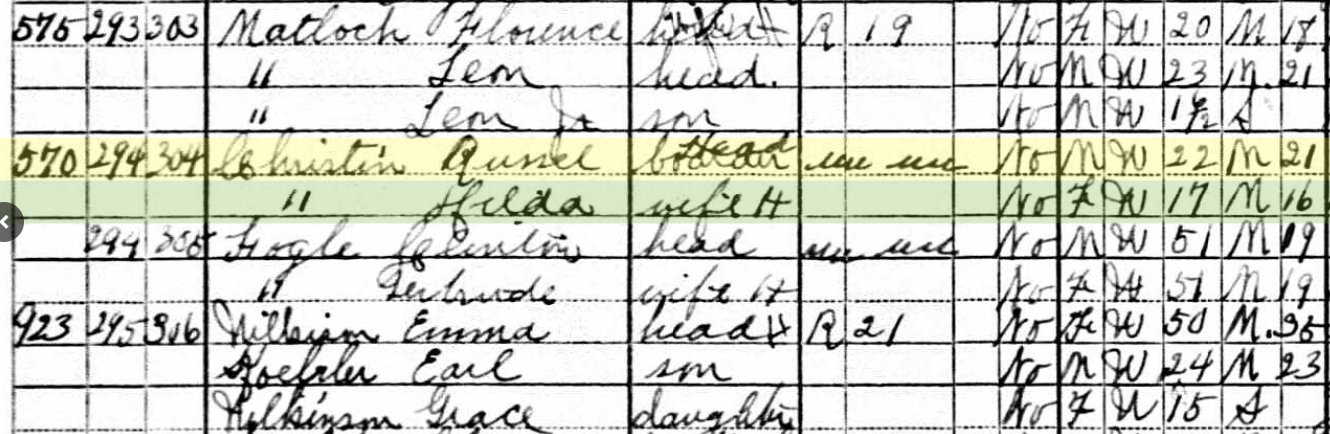 575 293 303 Matloch Florence R 19 No F W 20 M 18
" Leon head. No M W 23 M. 21
" Leon Jr son No M W 1 1/2 S
570 294 304 Christin Russel Head un un No M W 22 M 21
" Hilda wife H No F W 17 M 16
294 305 Fogle Clinton head un un No M W 51 M 19
" Gertrude wife H No F W 51 M 19
923 295 306 Emma head H R 21 No F W 50 M. 35
Koehler Earl son No M W 24 M 23
Wilkinson Grace daughter No F W 15 S